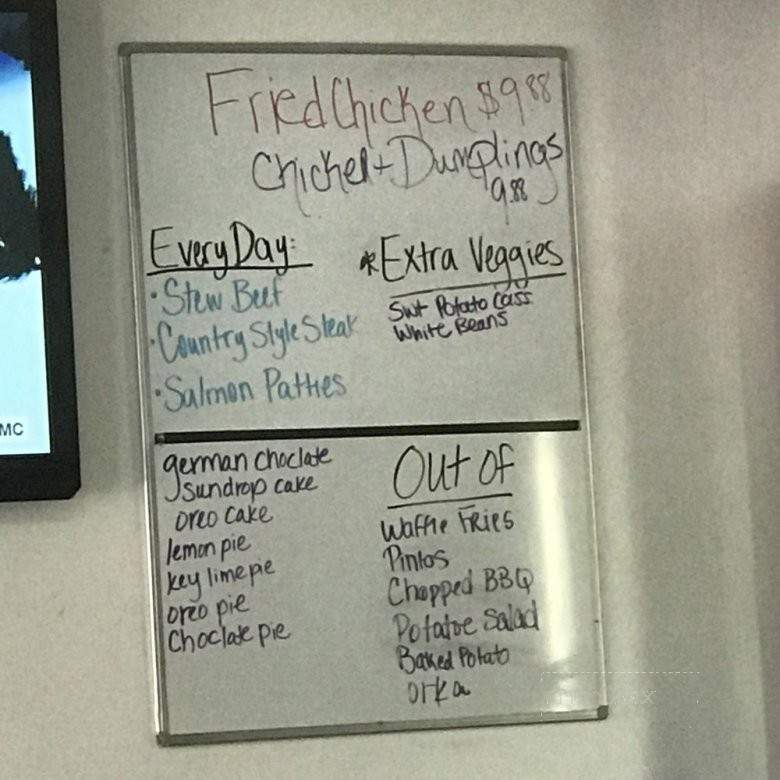 Fried Chicken $9.88
Chicken + Dumplings
9.88
Every Day:
• Stew Beef
• Country Style Steak
• Salmon Patties
*Extra Veggies
Swt Potato Cass
White Beans
german choclate
sundrop cake
oreo cake
lemon pie
key lime pie
oreo pie
Choclate pie
Out of
Waffle Fries
Pintos
Chopped BBQ
Potatoe Salad
Baked Potato
orka
MC